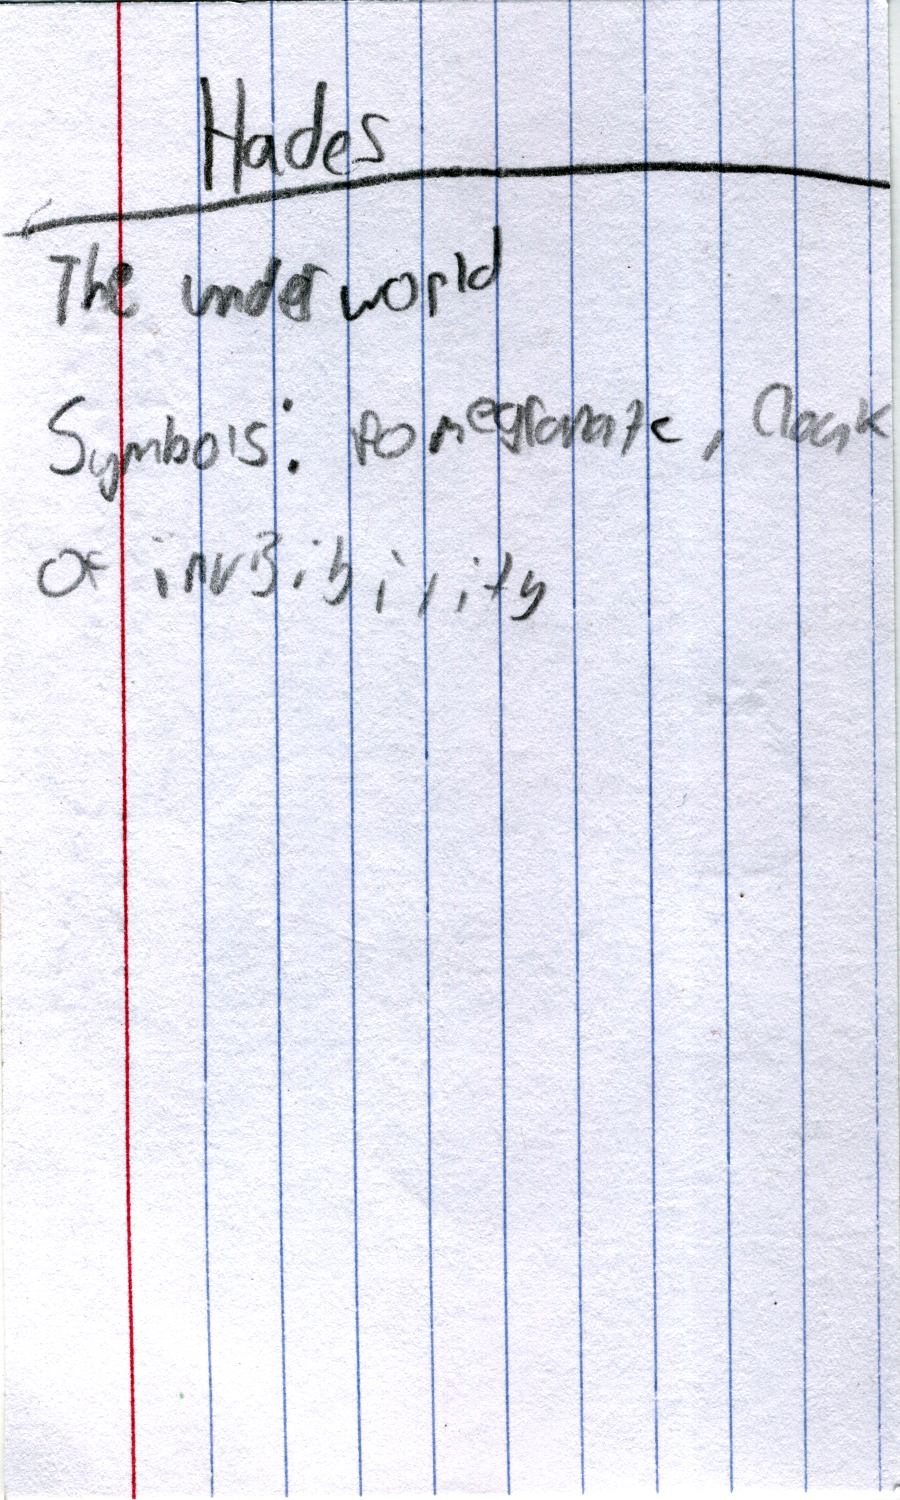 Hades
The underworld
Symbols: Pomegranate, Cloak
of invisibility